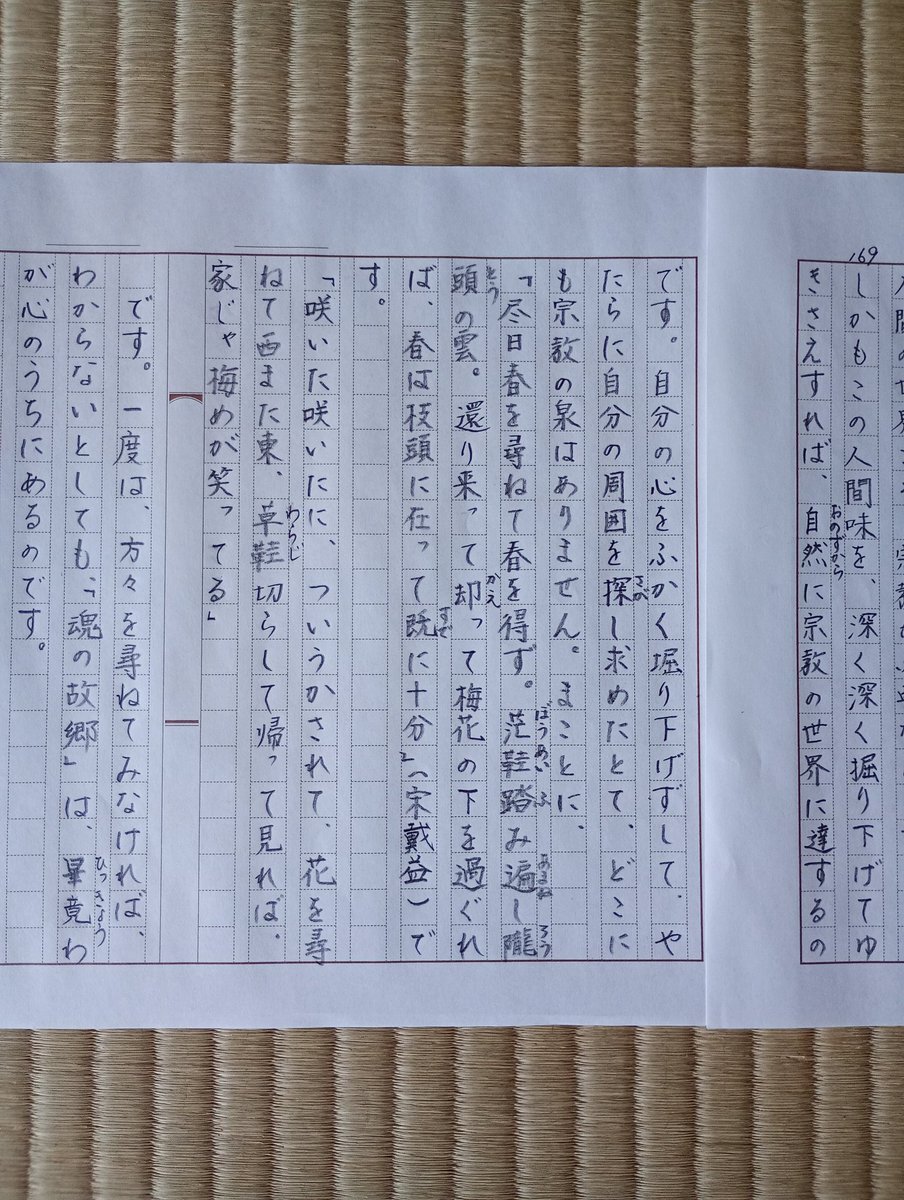 169
しかもこの人間味を、深く深く掘り下げてゆ
きさえすれば、自然に宗教の世界に達するの
です。自分の心をふかく堀り下げずして、や
たらに自分の周囲を探し求めたとて、どこに
も宗教の泉はありません。まことに、
「尽日春を尋ねて春を得ず。茫鞋踏み遍し隴
頭の雲。還り来って却って梅花の下を過ぐれ
ば、春は枝頭に在って既に十分」(宋戴益)で
す。
「咲いた咲いたに、ついうかされて、花を尋
ねて西また東、草鞋切らして帰って見れば、
家じゃ梅めが笑ってる」
です。一度は、方々を尋ねてみなければ、
わからないとしても、「魂の故郷」は、畢竟わ
が心のうちにあるのです。